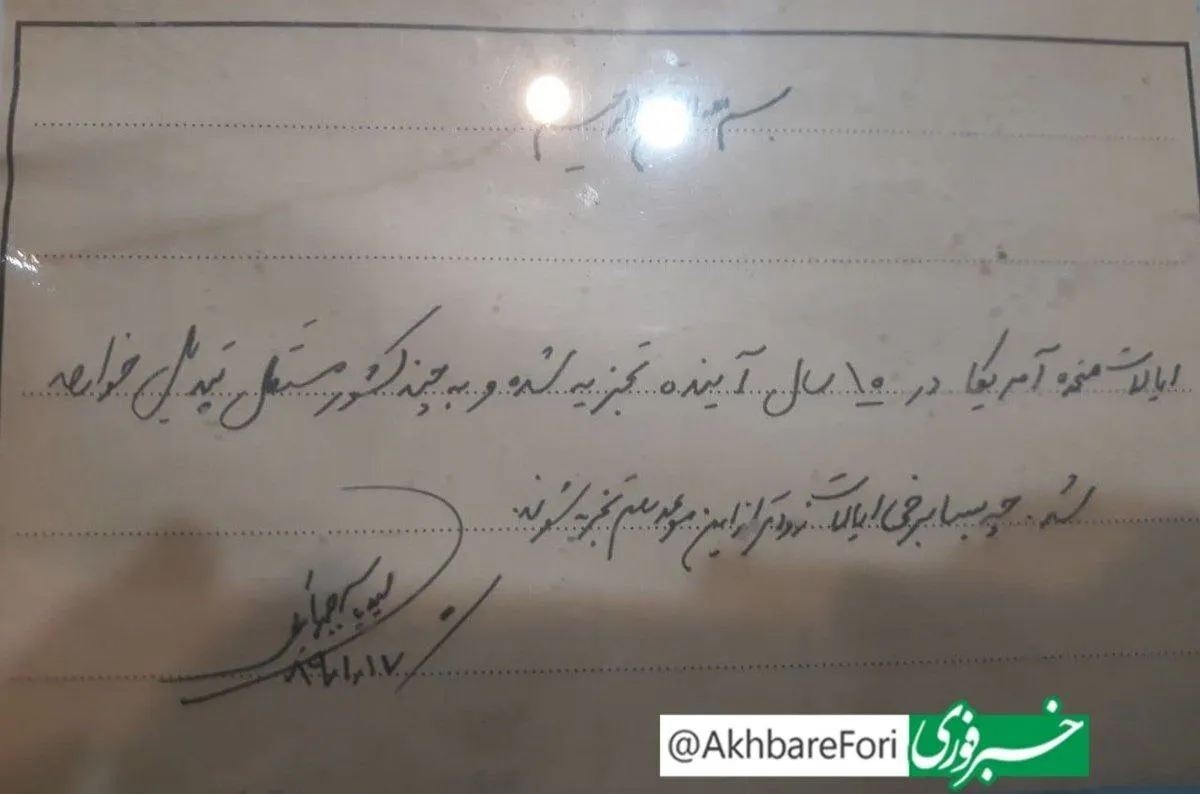 بسم الله الرحمن الرحیم
ایالات متحده آمریکا در ۱۵ سال آینده تجزیه شده و به چند کشور مستقل تبدیل خواهد
شد. چه بسا برخی ایالات زودتر از این موعد هم تجزیه شوند.
۸۹.۱.۱۷
@AkhbareFori خبرفوری